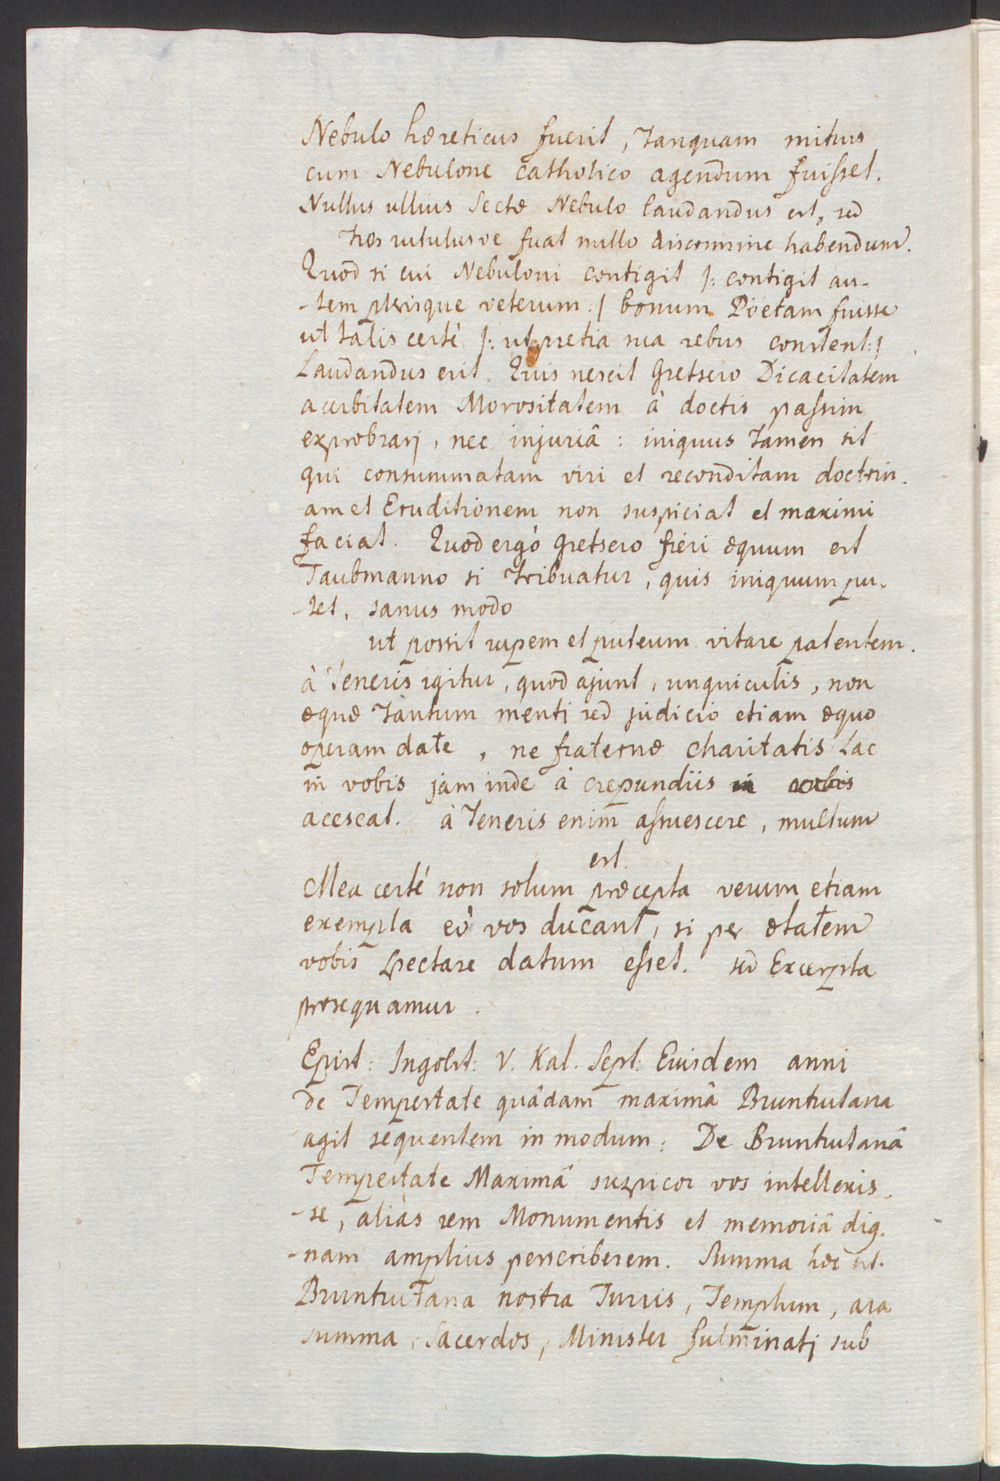 Nebulo hæreticus fuerit, tanquam mitius
cum Nebulone catholico agendum fuisset.
Nullus ullius Sectæ Nebulo laudandus est, sed
Tros rutulusve fuat nullo discrimine habendum.
Quod si cui Nebuloni contigit /: contigit au-
-tem plerisque veterum :/ bonum Poëtam fuisse
ut talis certè /: ut pretia sua rebus constent :/
Laudandus erit. Quis nescit Gretsero Dicacitatem
acerbitatem Morositatem à doctis passim
exprobrarj, nec injuriâ: iniquus tamen sit
qui consummatam viri et reconditam doctrin-
am et Eruditionem non suspiciat et maximi
faciat. Quod ergò Gretsero fieri æquum est
Taubmanno si tribuatur, quis iniquum pu-
-tet, sanus modo
ut possit rupem et puteum vitare patentem.
à Teneris igitur, quod ajunt, unguiculis, non
æquæ tantum menti sed judicio etiam æquo
operam date, ne fraternæ charitatis Lac
in vobis jam inde à crepundiis in vobis
acescat. à Teneris enim assuescere, multum
est.
Mea certè non solum præcepta verum etiam
exempla eò vos ducant, si per ætatem
vobis spectare datum esset. sed Excerpta
prosequamur.
Epist: Ingolst: V. Kal. Sept: Eiusdem anni
de Tempestate quâdam maximâ Bruntrutana
agit sequentem in modum: De Bruntrutanâ
Tempestate Maximâ suspicor vos intellexis-
-se, aliàs rem Monumentis et memoriâ dig-
-nam amplius perscriberem. Summa hæc est.
Bruntrutana nostra Turris, Templum, ara
summa, Sacerdos, Minister fulminatj sub